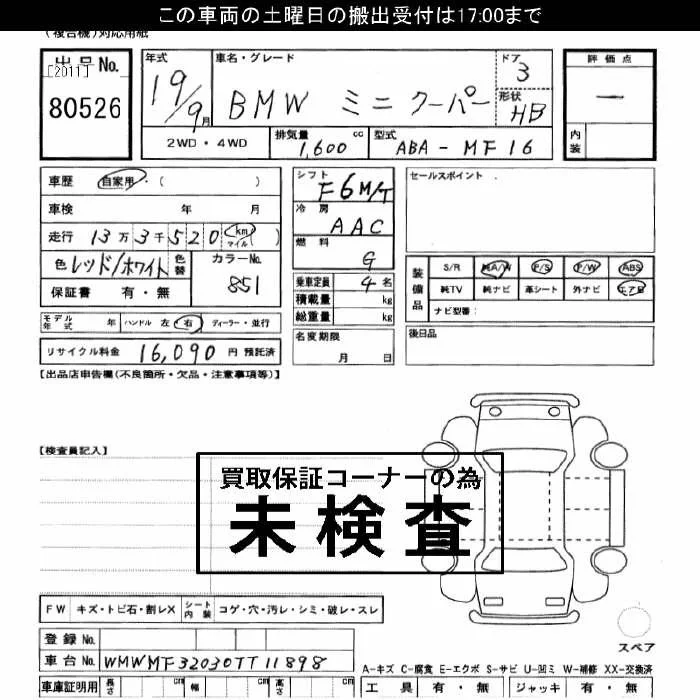 この車両の土曜日の搬出受付は17:00まで
(複合機)対応用紙
出品No. [2011] 80526
年式 19/9月
車名・グレード BMW ミニ クーパー
ドア 3
形状 HB
評価点 ー
内装
2WD・4WD
排気量 1,600 cc
型式 ABA-MF16
車歴 自家用・( )
車検 年 月
走行 13万3千520 (km マイル)
色 レッド/ホワイト 色替 カラーNo. 851
保証書 有・無
シフト F6M/T
冷房 AAC
燃料 G
乗車定員 4名
積載量 kg
総重量 kg
セールスポイント
装備品
S/R ・ A/W ・ P/S ・ P/W ・ ABS
純TV 純ナビ 革シート 外ナビ エアB
ナビ型番:
モデル年式 年 ハンドル 左 右 ディーラー・並行
リサイクル料金 16,090 円 預託済
名変期限 月 日
後日品
【出品店申告欄(不良箇所・欠品・注意事項等)】
【検査員記入】
買取保証コーナーの為
未検査
FW キズ・トビ石・割レX
シート内装 コゲ・穴・汚レ・シミ・破レ・スレ
スペア
登録No.
車台No. WMWMF32030TT11898
A-キズ C-腐食 E-エクボ S-サビ U-凹ミ W-補修 XX-交換済
車庫証明用 長さ cm 幅 cm 高さ cm
工具 有・無 ジャッキ 有・無